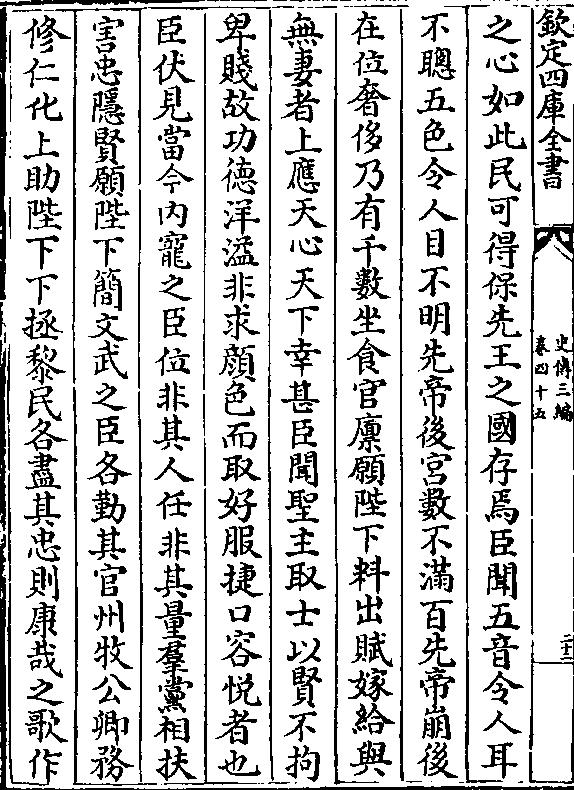 欽定四庫全書
史傳三編
卷四十五
二十二
之心如此民可得保先王之國存焉臣聞五音令人耳
不聰五色令人目不明先帝後宮數不滿百先帝崩後
在位奢侈乃有千數坐食官廩願陛下料出賦嫁給與
無妻者上應天心天下幸甚臣聞聖主取士以賢不拘
卑賤故功德洋溢非求顏色而取好服捷口容悅者也
臣伏見當今內寵之臣位非其人任非其量羣黨相扶
害忠隱賢願陛下簡文武之臣各勤其官州牧公卿務
修仁化上助陛下下拯黎民各盡其忠則康哉之歌作